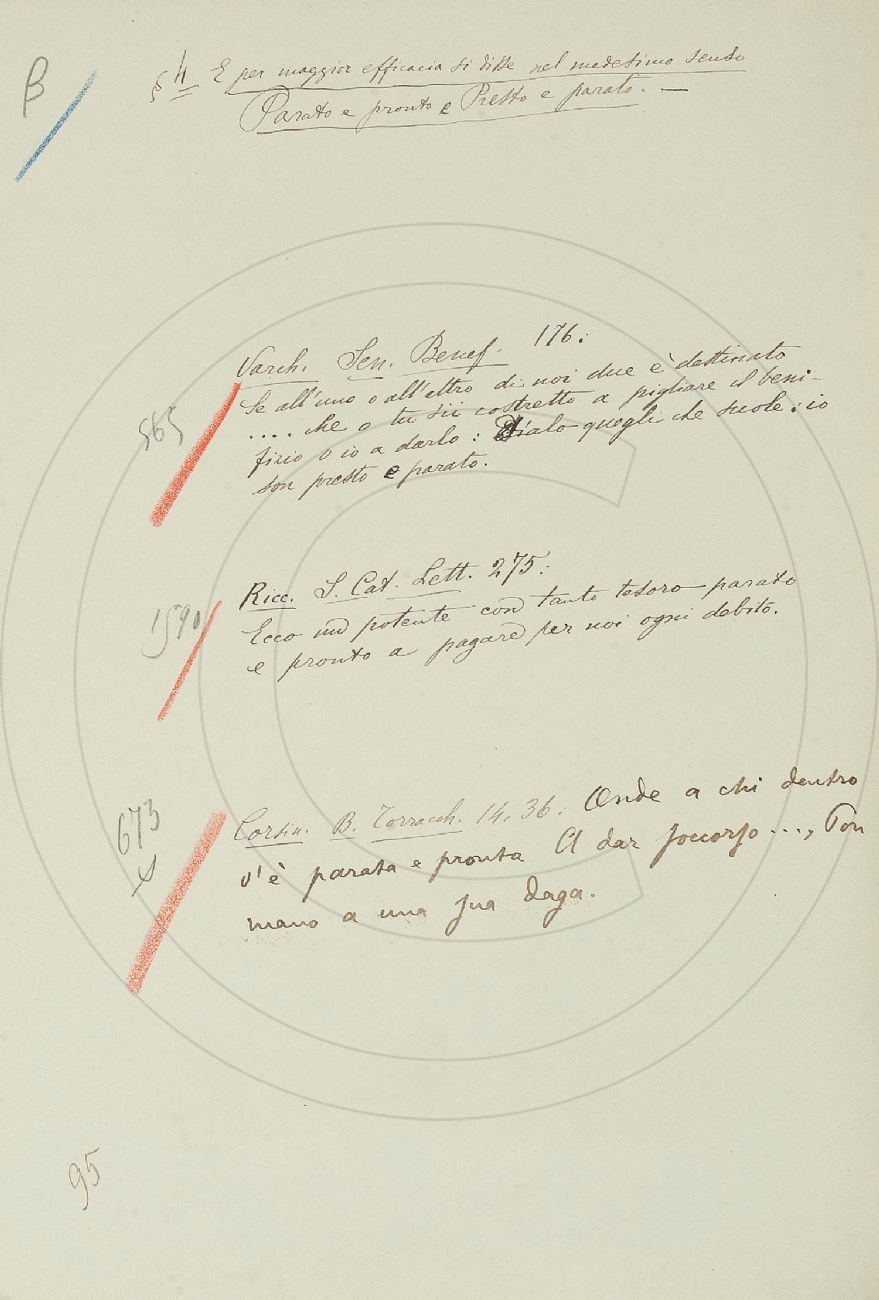 β
§ 4 E per maggior efficacia si disse nel medesimo senso
Parato e pronto e Presto e parato. —
Varch. Sen. Benef. 176:
Se all'uno o all'altro di noi due è destinato
.... che o tu sii costretto a pigliare il beni-
565
fizio o io a darlo: Dialo quegli che suole: io
son presto e parato.
Ricc. S. Cat. Lett. 275:
1590
Ecco un potente con tanto tesoro parato
e pronto a pagare per noi ogni debito.
673
Corsin. B. Torracch. 14, 36: Onde a chi dentro
v'è parata e pronta A dar soccorso ..., Pon
mano a una sua daga.
95